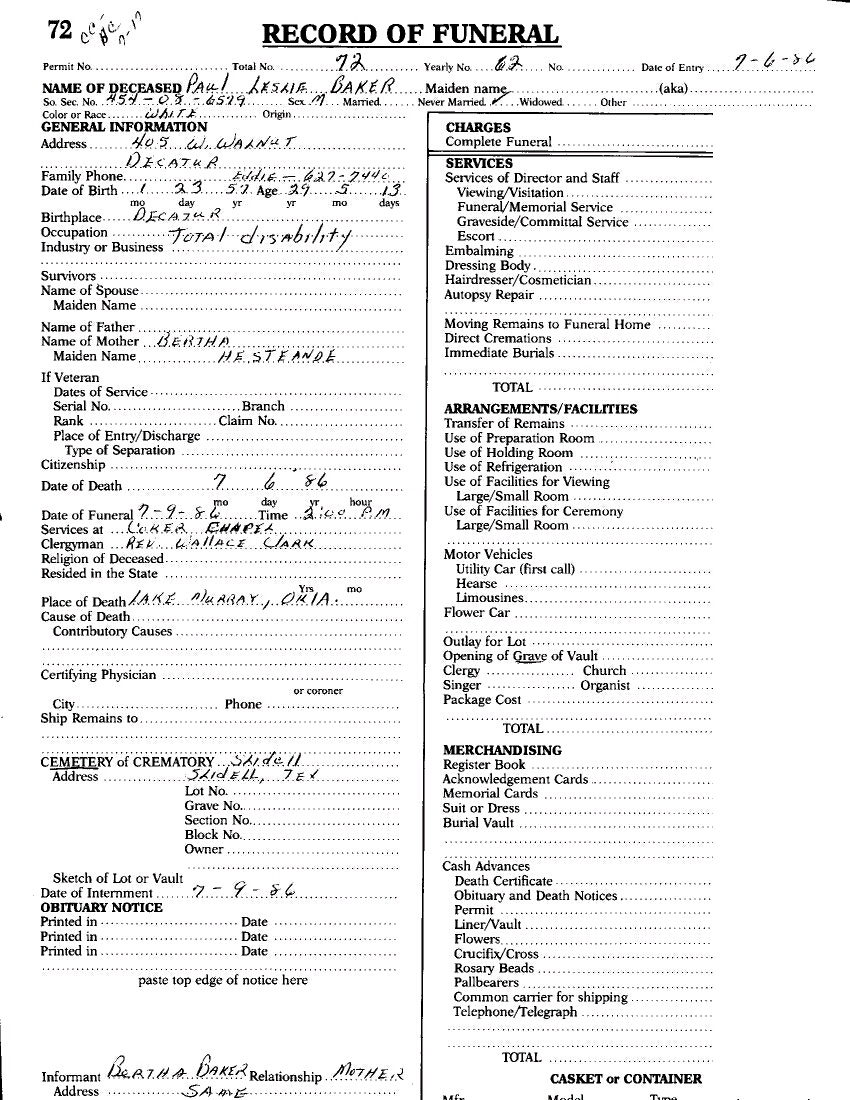 72
RECORD OF FUNERAL
Permit No. Total No. 72 Yearly No. 62 No. Date of Entry 7-6-86
NAME OF DECEASED PAUL LESLIE BAKER Maiden name (aka)
So. Sec. No. 454-08-6529 Sex M Married Never Married ✓ Widowed Other
Color or Race WHITE Origin
GENERAL INFORMATION
Address 405 W. WALNUT
DECATUR
Family Phone EDDIE - 627-7440
Date of Birth 1 23 57 Age 29 5 13
mo day yr yr mo days
Birthplace DECATUR
Occupation TOTAL disability
Industry or Business
Survivors
Name of Spouse
Maiden Name
Name of Father
Name of Mother BERTHA
Maiden Name HESTEANDE
If Veteran
Dates of Service
Serial No. Branch
Rank Claim No.
Place of Entry/Discharge
Type of Separation
Citizenship
Date of Death 7 6 86
mo day yr hour
Date of Funeral 7-9-86 Time 2:00 PM
Services at COKER CHAPEL
Clergyman REV. WALLACE CLARK
Religion of Deceased
Resided in the State
Yrs mo
Place of Death LAKE MURRAY, OKLA.
Cause of Death
Contributory Causes
Certifying Physician
or coroner
City Phone
Ship Remains to
CEMETERY of CREMATORY Slidell
Address SLIDELL, TEX
Lot No.
Grave No.
Section No.
Block No.
Owner
Sketch of Lot or Vault
Date of Internment 7-9-86
OBITUARY NOTICE
Printed in Date
Printed in Date
Printed in Date
paste top edge of notice here
Informant BERTHA BAKER Relationship MOTHER
Address SAME
CHARGES
Complete Funeral
SERVICES
Services of Director and Staff
Viewing/Visitation
Funeral/Memorial Service
Graveside/Committal Service
Escort
Embalming
Dressing Body
Hairdresser/Cosmetician
Autopsy Repair
Moving Remains to Funeral Home
Direct Cremations
Immediate Burials
TOTAL
ARRANGEMENTS/FACILITIES
Transfer of Remains
Use of Preparation Room
Use of Holding Room
Use of Refrigeration
Use of Facilities for Viewing
Large/Small Room
Use of Facilities for Ceremony
Large/Small Room
Motor Vehicles
Utility Car (first call)
Hearse
Limousines
Flower Car
Outlay for Lot
Opening of Grave of Vault
Clergy Church
Singer Organist
Package Cost
TOTAL
MERCHANDISING
Register Book
Acknowledgement Cards
Memorial Cards
Suit or Dress
Burial Vault
Cash Advances
Death Certificate
Obituary and Death Notices
Permit
Liner/Vault
Flowers
Crucifix/Cross
Rosary Beads
Pallbearers
Common carrier for shipping
Telephone/Telegraph
TOTAL
CASKET or CONTAINER
Mfr. Model Type